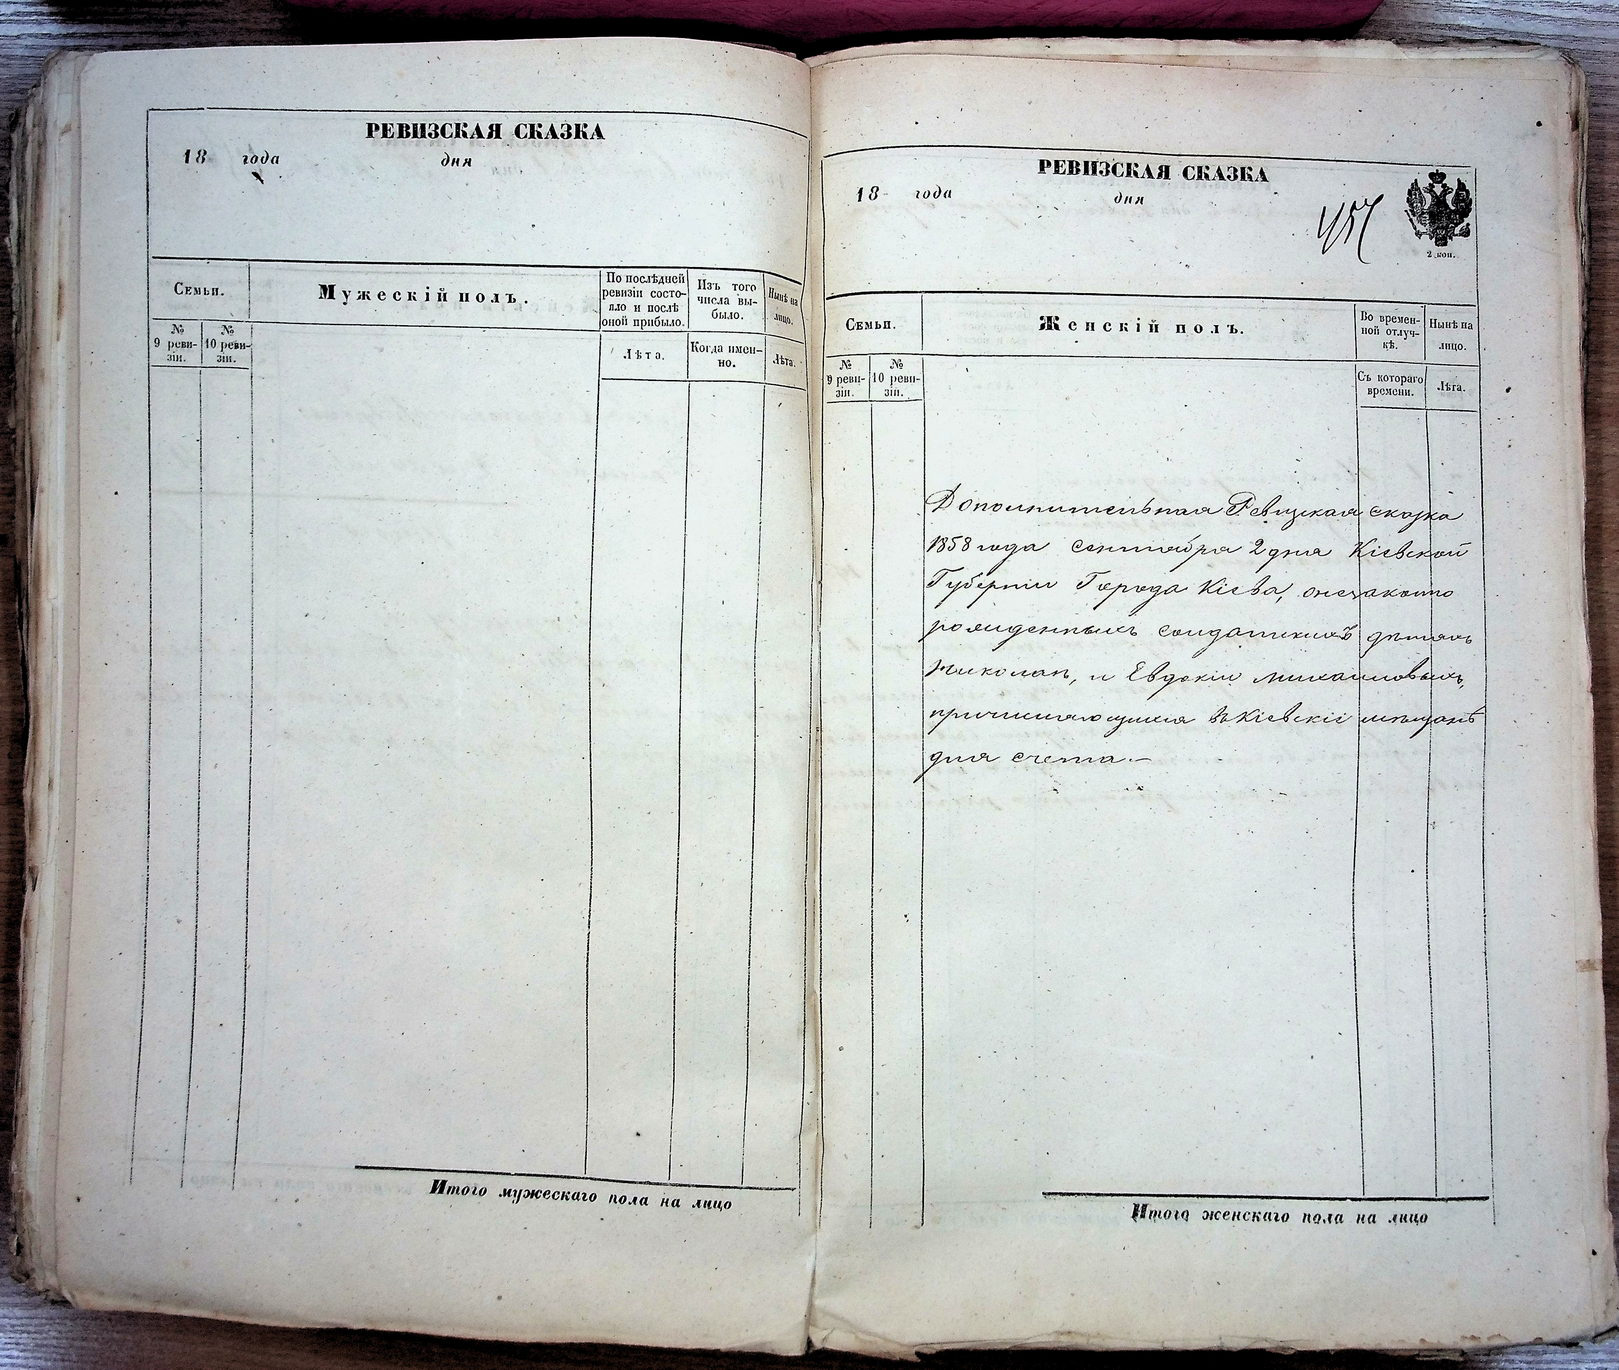 РЕВИЗСКАЯ СКАЗКА
18 года дня
Семьи.
Мужескій полъ.
По послѣдней ревизіи состояло и послѣ оной прибыло.
Изъ того числа выбыло.
Нынѣ на лицо.
№ 9 ревизіи.
№ 10 ревизіи.
Лѣта.
Когда именно.
Лѣта.
Итого мужескаго пола на лицо
РЕВИЗСКАЯ СКАЗКА
18 года дня
457
2 коп.
Семьи.
Женскій полъ.
Во временной отлучкѣ.
Нынѣ на лицо.
№ 9 ревизіи.
№ 10 ревизіи.
Съ котораго времени.
Лѣта.
Дополнительная Ревизская сказка
1858 года сентября 2 дня Кіевской
Губерніи Города Кіева, онезаконно
рожденныхъ солдатскихъ дѣтяхъ
Николаѣ, и Евдокіи Михайловыхъ,
причисляющихся въ Кіевскіе мѣщанѣ
для счета.—
Итого женскаго пола на лицо